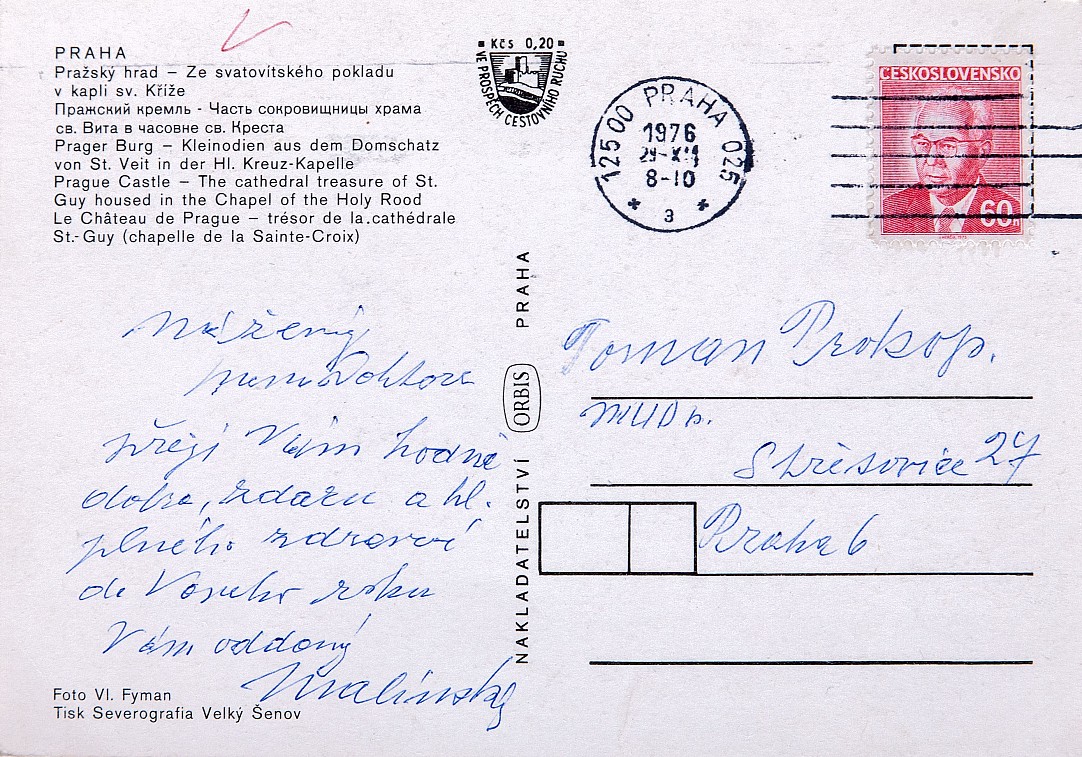 PRAHA
Pražský hrad – Ze svatovítského pokladu
v kapli sv. Kříže
Пражский кремль - Часть сокровищницы храма
св. Вита в часовне св. Креста
Prager Burg – Kleinodien aus dem Domschatz
von St. Veit in der Hl. Kreuz-Kapelle
Prague Castle – The cathedral treasure of St.
Guy housed in the Chapel of the Holy Rood
Le Château de Prague – trésor de la cathédrale
St.-Guy (chapelle de la Sainte-Croix)
Kčs 0,20
VE PROSPĚCH CESTOVNÍHO RUCHU
125 00 PRAHA 025
1976
8-10
3
ČESKOSLOVENSKO
60h
Vážený
pane Doktore
přeji Vám hodně
dobra, zdaru a hl.
plného zdraví
do Nového roku
Vám oddaný
Malínský
NAKLADATELSTVÍ ORBIS PRAHA
Toman Prokop.
MUDr.
Střešovice 27
Praha 6
Foto Vl. Fyman
Tisk Severografia Velký Šenov